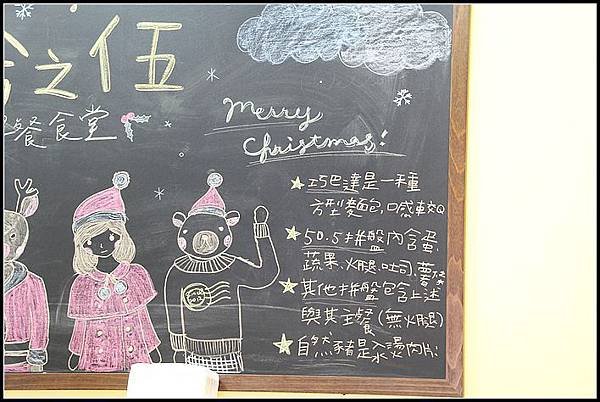 之伍
餐食堂
Merry
Christmas!
★巧巴達是一種
方型麵包,口感較Q
★50.5拼盤內含蛋,
蔬果.火腿.吐司.薯條
★其他拼盤包含上述
與其主餐(無火腿)
★自然豬是水煮肉片